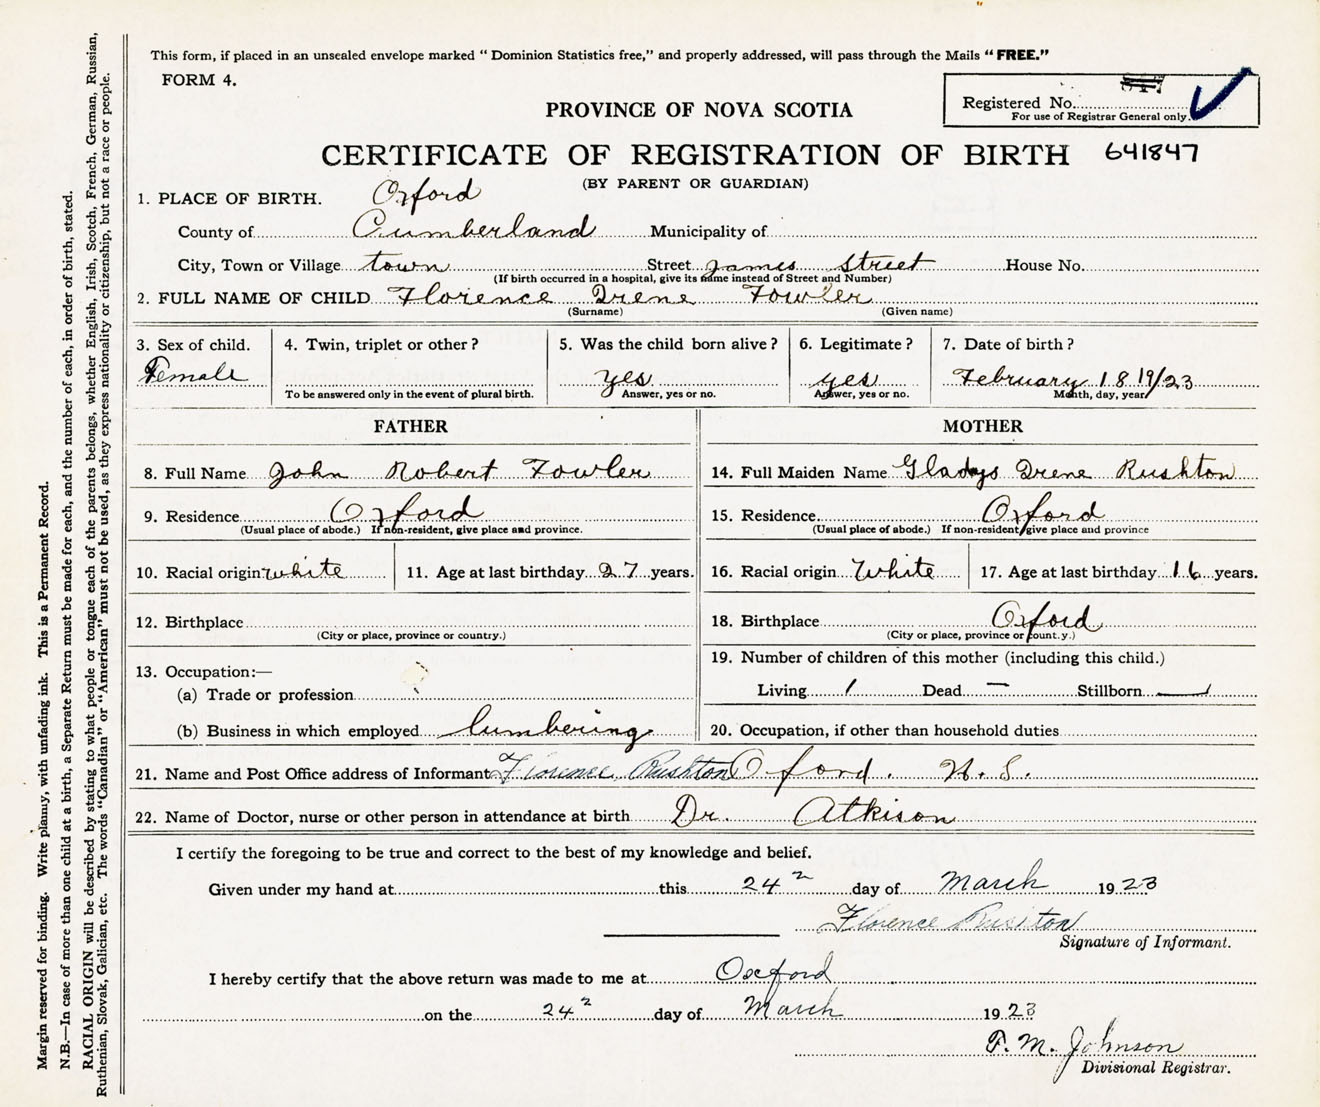 This form, if placed in an unsealed envelope marked “ Dominion Statistics free,” and properly addressed, will pass through the Mails “ FREE.”
FORM 4.
Registered No.
For use of Registrar General only.
PROVINCE OF NOVA SCOTIA
CERTIFICATE OF REGISTRATION OF BIRTH 641847
(BY PARENT OR GUARDIAN)
1. PLACE OF BIRTH. Oxford
County of Cumberland Municipality of
City, Town or Village town Street James Street House No.
(If birth occurred in a hospital, give its name instead of Street and Number)
2. FULL NAME OF CHILD Florence Irene Fowler
(Surname) (Given name)
3. Sex of child. 4. Twin, triplet or other ? 5. Was the child born alive ? 6. Legitimate ? 7. Date of birth ?
Female yes yes February 18 19/23
To be answered only in the event of plural birth. Answer, yes or no. Answer, yes or no. Month, day, year
FATHER MOTHER
8. Full Name John Robert Fowler 14. Full Maiden Name Gladys Irene Rushton
9. Residence Oxford 15. Residence Oxford
(Usual place of abode.) If non-resident, give place and province. (Usual place of abode.) If non-resident, give place and province
10. Racial origin white 11. Age at last birthday 27 years. 16. Racial origin White 17. Age at last birthday 16 years.
12. Birthplace 18. Birthplace Oxford
(City or place, province or country.) (City or place, province or country.)
13. Occupation:— 19. Number of children of this mother (including this child.)
(a) Trade or profession Living 1 Dead — Stillborn —
(b) Business in which employed lumbering 20. Occupation, if other than household duties
21. Name and Post Office address of Informant Florence Rushton Oxford. N.S.
22. Name of Doctor, nurse or other person in attendance at birth Dr. Atkison
I certify the foregoing to be true and correct to the best of my knowledge and belief.
Given under my hand at this 24 day of March 1923
Florence Rushton
Signature of Informant.
I hereby certify that the above return was made to me at Oxford
on the 24 day of March 1923
F. M. Johnson
Divisional Registrar.
Margin reserved for binding. Write plainly, with unfading ink. This is a Permanent Record.
N.B.—In case of more than one child at a birth, a Separate Return must be made for each, and the number of each, in order of birth, stated.
RACIAL ORIGIN will be described by stating to what people or tongue each of the parents belongs, whether English, Irish, Scotch, French, German, Russian,
Ruthenian, Slovak, Galician, etc. The words “Canadian” or “American” must not be used, as they express nationality or citizenship, but not a race or people.